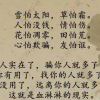 雪怕太阳，草怕霜，
人怕没钱，情怕伤。
花怕凋零，田怕荒，
心怕欺骗，友怕谎。
人实在了，骗你人就多了
有用了，找你的人就多了
没用了，远离你的人就多
这就是血淋淋的现实。